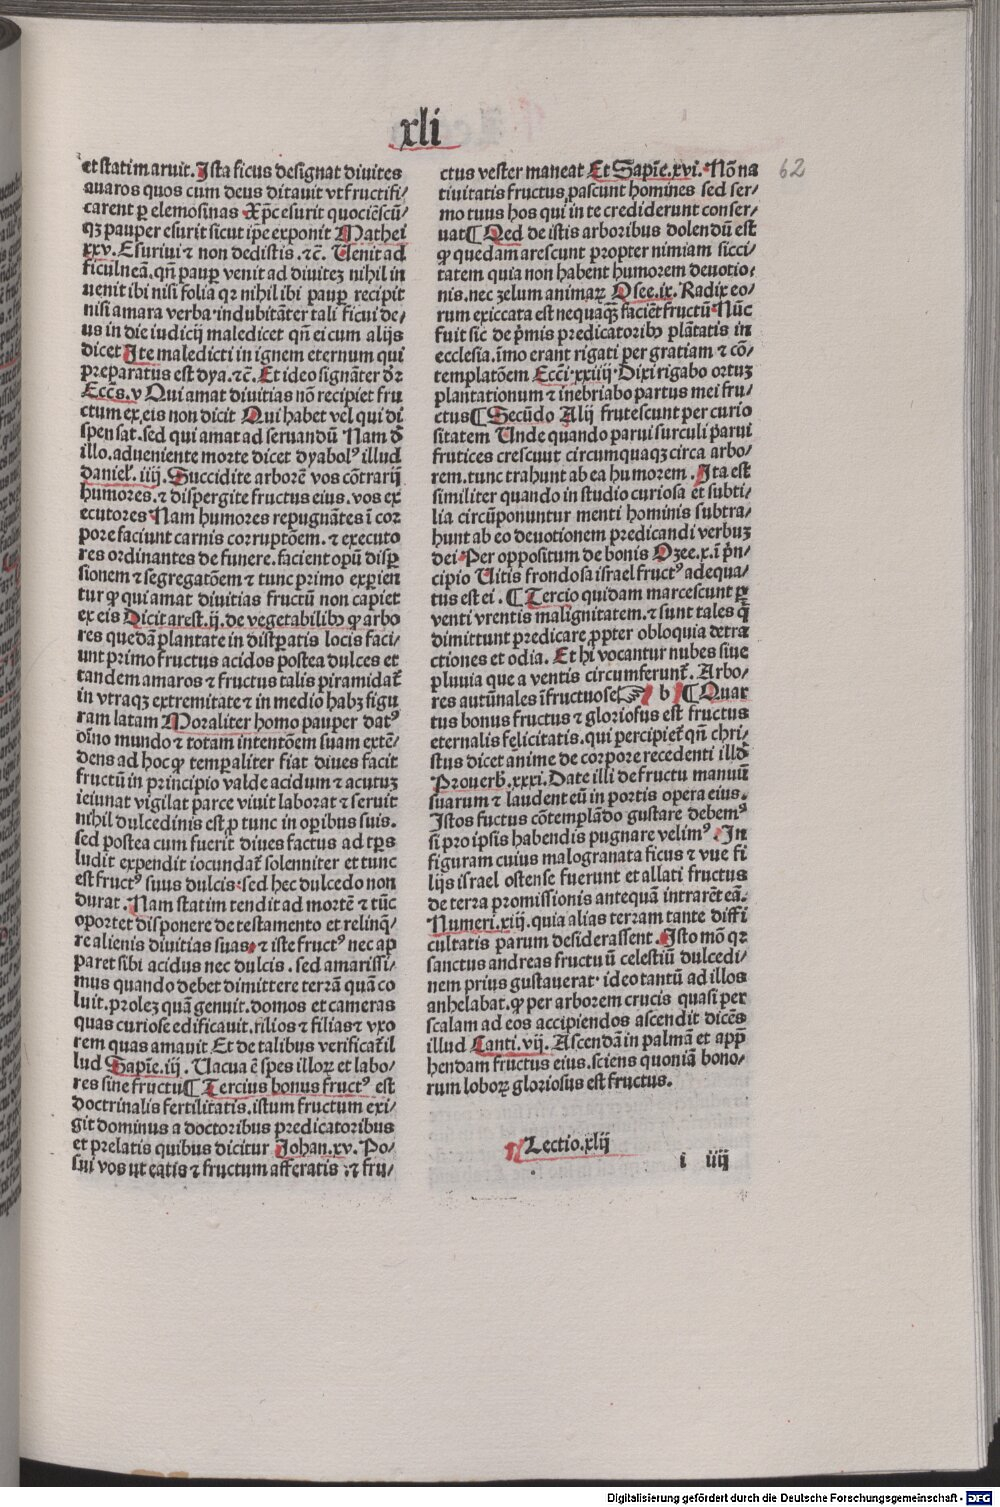 xli
62
et statim aruit. Ista ficus designat diuites
auaros quos cum deus ditauit vt fructifi/
carent p̱ elemosinas Xp̄c esurit quociēscū/
qꝫ pauper esurit sicut ip̄e exponit Mathei
xxv. Esuriui ⁊ non dedistis .⁊c̄. Uenit ad
ficulneā. qn̄ paup̱ venit ad diuiteꝫ nihil in
uenit ibi nisi folia qꝛ nihil ibi paup̱ recipit
nisi amara verba. indubitāter tali ficui de/
us in die iudicij maledicet qn̄ ei cum alijs
dicet Ite maledicti in ignem eternum qui
preparatus est dya. ⁊c̄. Et ideo signāter dr̄
Eccs̄. v Qui amat diuitias nō recipiet fru
ctum ex eis non dicit Qui habet vel qui di
spensat. sed qui amat ad seruandū Nam d̄
illo. adueniente morte dicet dyabolꝰ illud
daniel̓. iiij. Succidite arborē vos cōtrarij
humores. ⁊ dispergite fructus eius. vos ex
ecutores Nam humores repugnātes ī cor
pore faciunt carnis corruptōem. ⁊ executo
res ordinantes de funere. facient opū disp̱
sionem ⁊ segregatōem ⁊ tunc primo experien
tur ꝙ qui amat diuitias fructū non capiet
ex eis Dicit arest. ij. de vegetabilibꝫ ꝙ arbo
res quedā plantate in dist̄patis locis faci/
unt primo fructus acidos postea dulces et
tandem amaros ⁊ fructus talis piramidat̄
in vtraqꝫ extremitate ⁊ in medio habꝫ figu
ram latam Moraliter homo pauper datꝰ
oīno mundo ⁊ totam intentōem suam extē/
dens ad hoc ꝙ temp̱aliter fiat diues facit
fructū in principio valde acidum ⁊ acutuꝫ
ieiunat vigilat parce viuit laborat ⁊ seruit
nihil dulcedinis est ꝓ tunc in op̱ibus suis.
sed postea cum fuerit diues factus ad tp̄s
ludit expendit iocundat̄ solenniter et tunc
est fructꝰ suus dulcis. sed hec dulcedo non
durat. Nam statim tendit ad mortē ⁊ tūc
oportet disponere de testamento et relinq̄/
re alienis diuitias suas. ⁊ iste fructꝰ nec ap
paret sibi acidus nec dulcis. sed amarissi/
mus quando debet dimittere terrā quā co
luit. prolez quā genuit. domos et cameras
quas curiose edificauit. filios ⁊ filias ⁊ vxo
rem quas amauit Et de talibus verificat̄ il
lud Sapīe. iij. Uacua ē spes illoꝝ et labo/
res sine fructu ¶ Tercius bonus fructꝰ est
doctrinalis fertilitatis. istum fructum exi/
git dominus a doctoribus predicatoribus
et prelatis quibus dicitur Johan. xv. Po/
sui vos ut eatis ⁊ fructum afferatis. ⁊ fru/
ctus vester maneat Et Sapīe. xvi. Nō na
tiuitatis fructus pascunt homines sed ser/
mo tuus hos qui in te crediderunt conser/
uat ¶ Qed de istis arboribus dolendū est
ꝙ quedam arescunt propter nimiam sicci/
tatem quia non habent humorem deuotio/
nis. nec zelum animaꝝ Osee. ix. Radix eo/
rum exiccata est nequaqꝫ faciēt fructū. Nūc
fuit sic de p̄mis predicatoribꝫ plātatis in
ecclesia. īmo erant rigati per gratiam ⁊ cō/
templatōem Ecci. xxiiij. Dixi rigabo ortuꝫ
plantationum ⁊ inebriabo partus mei fru/
ctus ¶ Secūdo Alij frutescunt per curio
sitatem Unde quando parui surculi p̄arui
frutices crescunt circumquaqꝫ circa arbo/
rem. tunc trahunt ab ea humorem. Ita est
similiter quando in studio curiosa et subti/
lia circūponuntur menti hominis subtra/
hunt ab eo deuotionem predicandi verbuꝫ
dei. Per oppositum de bonis Ozee. x. ī p̄n/
cipio Uitis frondosa israel fructꝰ adequa/
tus est ei. ¶ Tercio quidam marcescunt p̱
venti vrentis malignitatem. ⁊ sunt tales q̄
dimittunt predicare ꝓpter obloquia detra
ctiones et odia. Et hi vocantur nubes siue
pluuia que a ventis circumferunt̄. Arbo/
res autūnales īfructuose ☞ b ¶ Quar
tus bonus fructus ⁊ gloriosus est fructus
eternalis felicitatis. qui percipiet̄ qn̄ chri/
stus dicet anime de corpore recedenti illd̄
Prouerb̄. xxxi. Date illi de fructu manuū
suarum ⁊ laudent eū in portis opera eius.
Istos fuctus cōtemplādo gustare debemꝰ
si pro ipsis habendis pugnare velimꝰ. In
figuram cuius malogranata ficus ⁊ vue fi
lijs israel ostense fuerunt et allati fructus
de terra promissionis antequā intrarēt eā.
Numeri. xiij. quia alias terram tante diffi
cultatis parum desiderassent. Isto mō qꝛ
sanctus andreas fructuū celestiū dulcedi/
nem prius gustauerat. ideo tantū ad illos
anhelabat. ꝙ per arborem crucis quasi per
scalam ad eos accipiendos ascendit dicēs
illud Canti. vij. Ascendā in palmā et app̄
hendam fructus eius. sciens quoniā bono/
rum loboꝝ gloriosus est fructus.
¶ Lectio. xlij
i iiij
Digitalisierung gefördert durch die Deutsche Forschungsgemeinschaft - DFG